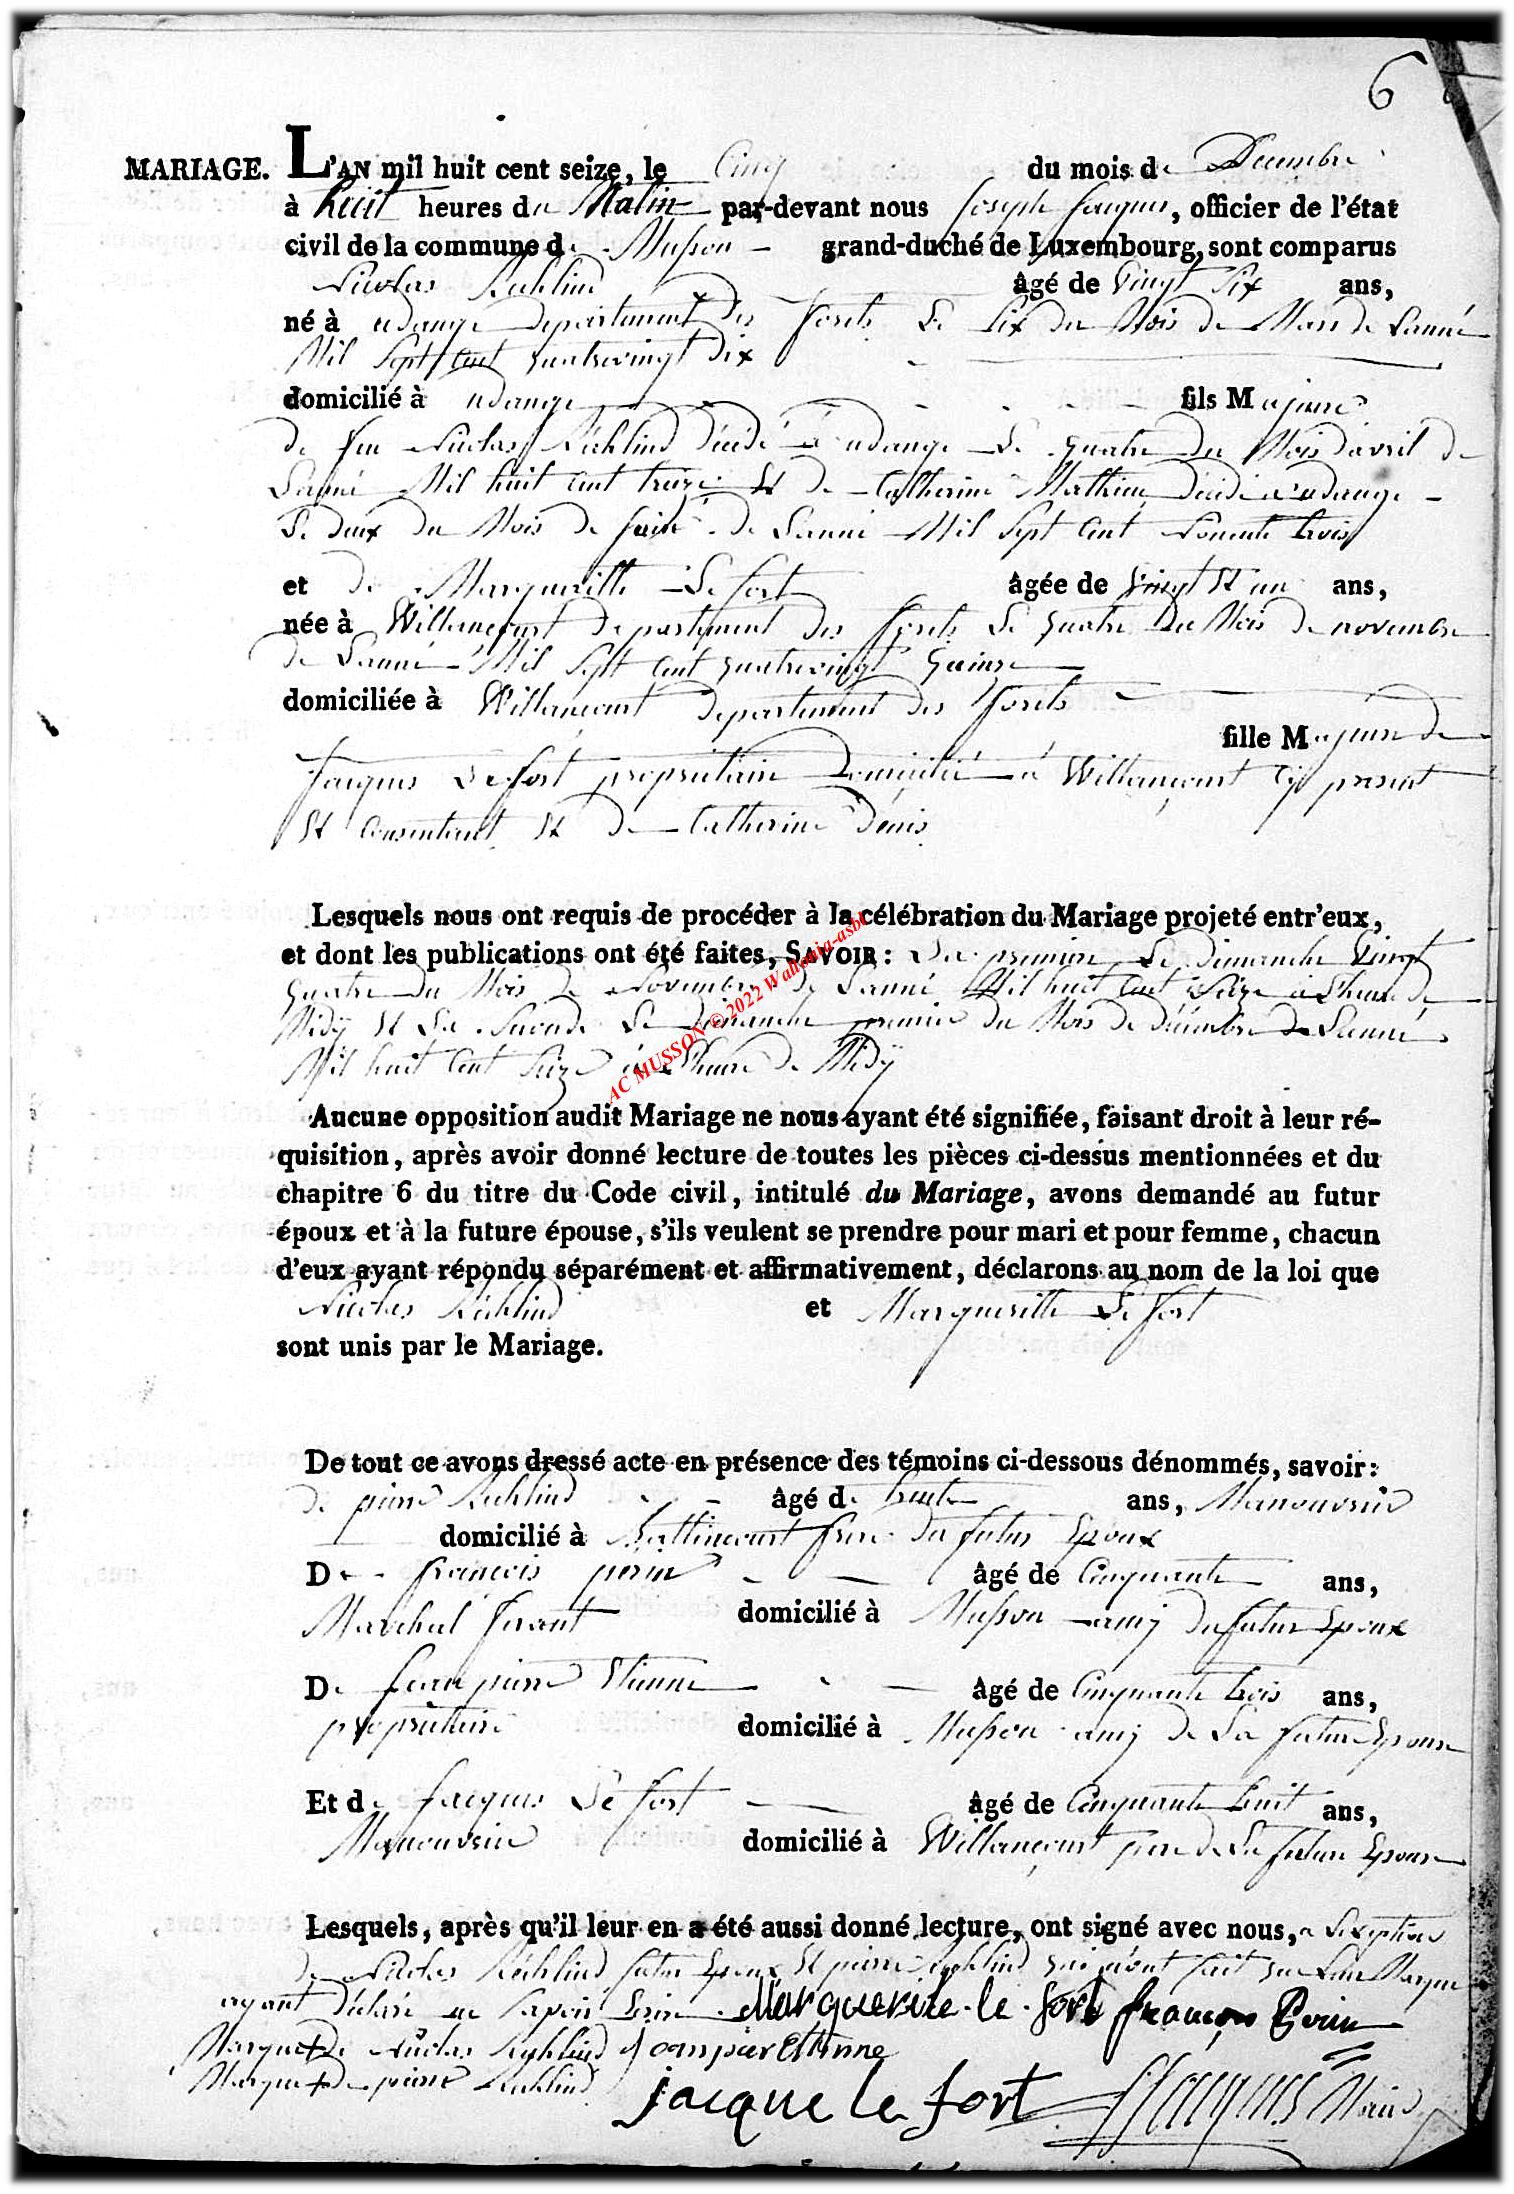 6
MARIAGE. L'AN mil huit cent seize, le Cinq du mois de Decembre
à huit heures du Matin par-devant nous Joseph Jacques, officier de l'état
civil de la commune de Musson grand-duché de Luxembourg, sont comparus
Nicolas Réchlind âgé de Vingt six ans,
né à udange departement des forets Le six du Mois de Mars de Lanné
Mil Sept cent quatrevingt dix
domicilié à udange fils Majeure
de feu Nicolas Réchlind décidé à udange Le quatre du Mois d'avril de
Lanné Mil huit cent treize Et de Catherine Mathieu décidé a udange
Le deux du Mois de de Lanné Mil Sept cent Nonente trois
et de Margueritte Le fort âgée de vingt Et un ans,
née à Willancourt departement des forets Le quatre du Mois de novembre
de Lanné Mil Sept cent quatrevingt quinze
domiciliée à Willancourt departement des forets
fille Majeure de
Jacques Le fort propriétaire domicilié à Willançourt cy present
Et consentant Et de Catherine Dénis
Lesquels nous ont requis de procéder à la célébration du Mariage projeté entr'eux,
et dont les publications ont été faites, SAVOIR: La premiere Le dimanche Vingt
quatre du Mois de Novembre de Lanné Mil huit cent Seize a Lheure de
Midÿ Et La Seconde Le dimanche premier du Mois de décembre de Lanné
Mil huit cent Seize à Lheure de Midÿ
AC MUSSON © 2022 Wallonia-asbl
Aucune opposition audit Mariage ne nous ayant été signifiée, faisant droit à leur ré-
quisition, après avoir donné lecture de toutes les pièces ci-dessus mentionnées et du
chapitre 6 du titre du Code civil, intitulé du Mariage, avons demandé au futur
époux et à la future épouse, s'ils veulent se prendre pour mari et pour femme, chacun
d'eux ayant répondu séparément et affirmativement, déclarons au nom de la loi que
Nicolas Réchlind et Margueritte Le fort
sont unis par le Mariage.
De tout ce avons dressé acte en présence des témoins ci-dessous dénommés, savoir:
de pierre Réchlind âgé de trente ans, Manouvrié
domicilié à Battincourt frere du futur Epoux
De françois perin âgé de Cinquante ans,
Marchal ferant domicilié à Musson amij du futur Epoux
De Jean pierre Etienne âgé de Cinquante trois ans,
propriettaire domicilié à Musson amij de La future Epouse
Et de Jacques Le fort âgé de Cinquante huit ans,
Manouvrié domicilié à Willançourt pere de La future Epouse
Lesquels, après qu'il leur en a été aussi donné lecture, ont signé avec nous, a Exeption
de Nicolas Réchlind futur Epoux Et pierre Réchlind qui n'ont fait que Leur Marque
ayant déclaré ne Savoir Ecrire Marguerite le fort françois Perin
Marque + de Nicolas Réchlind Jean piere Etienne
Marque + de pierre Réchlind jacque le fort JJacques Maire